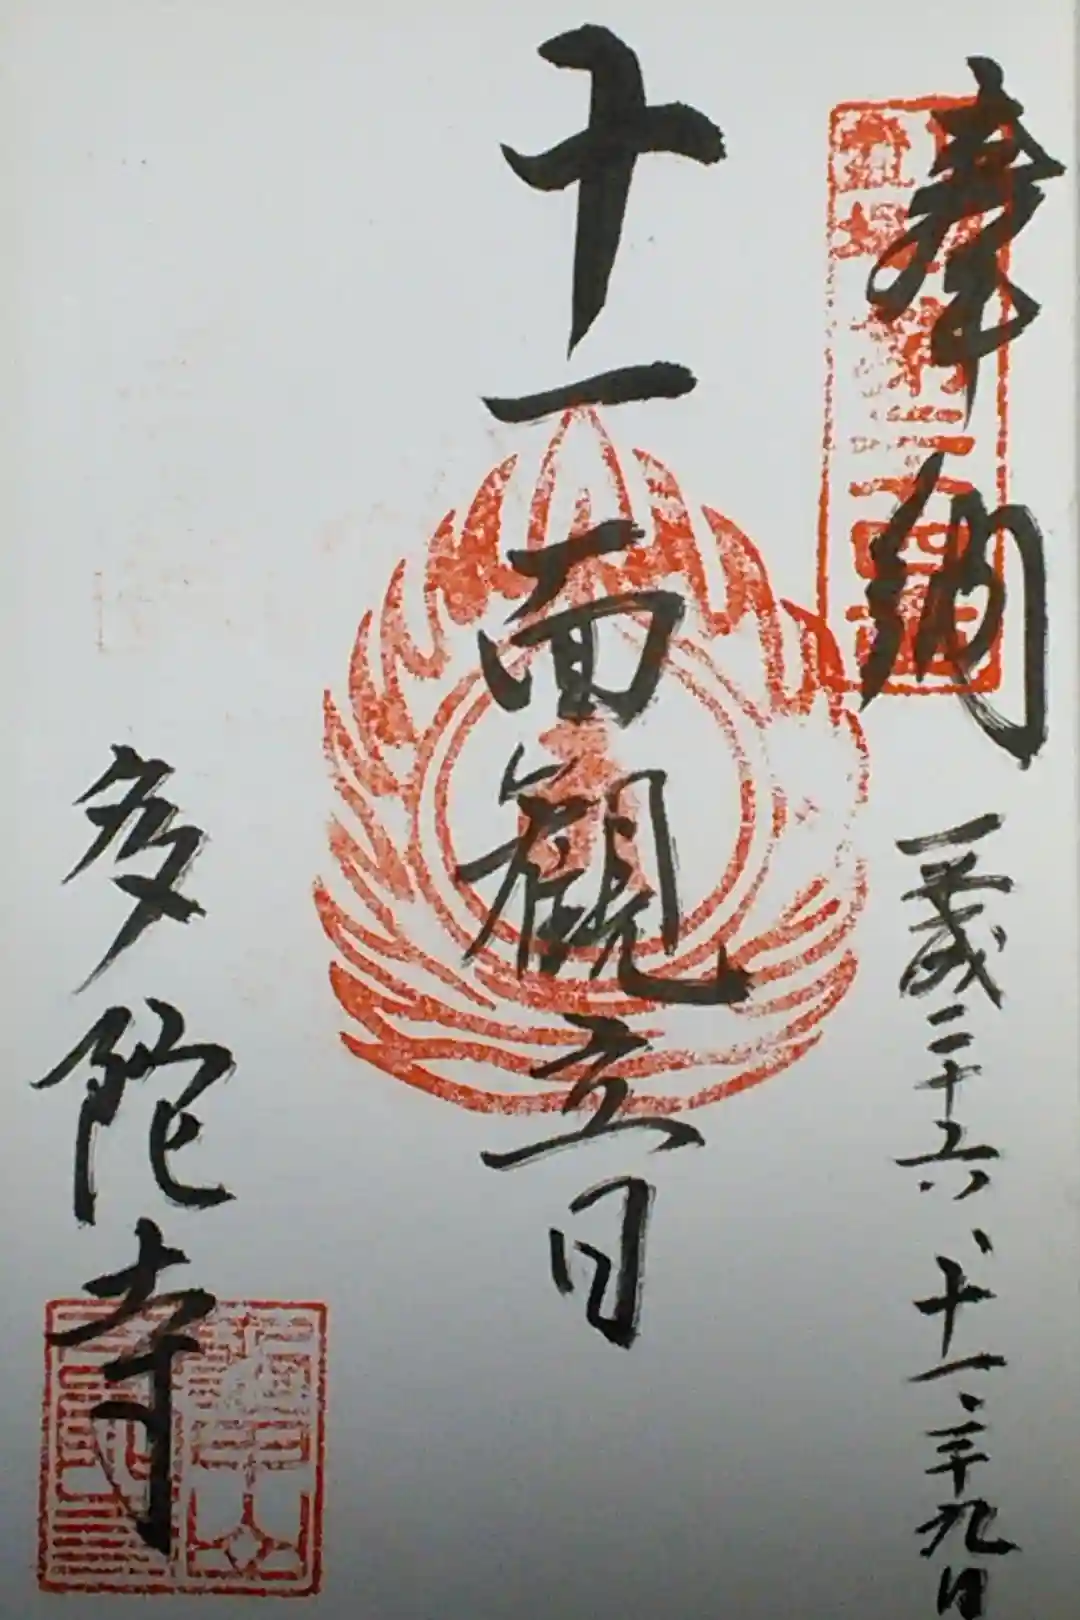 奉納 平成二十六、十一、二十九日
十一面觀音
多陀寺